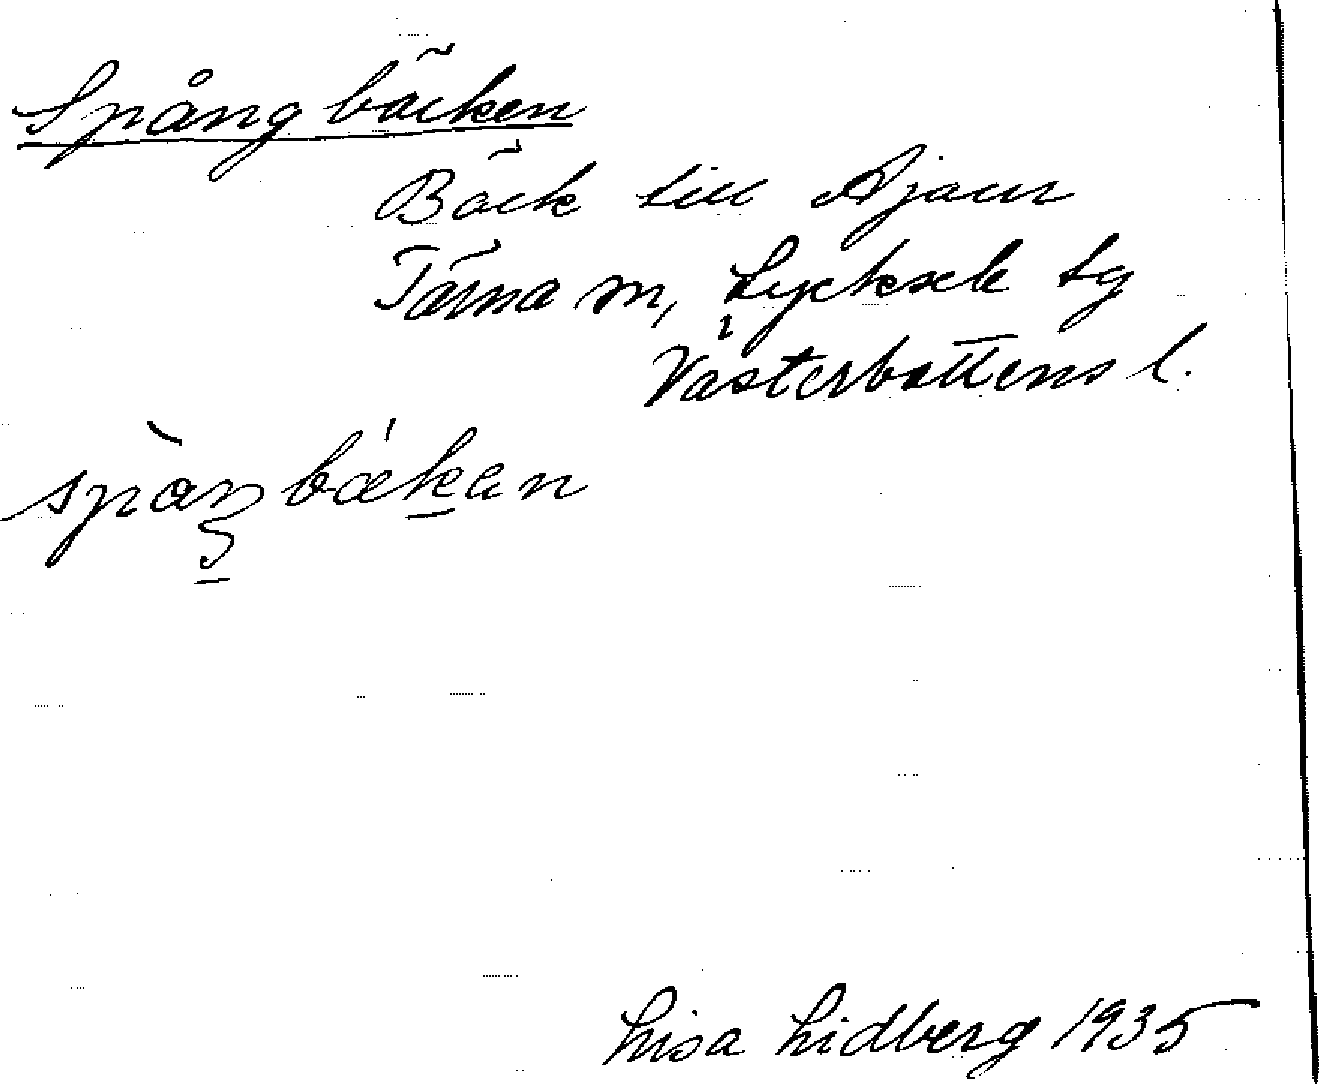 Spångbäcken
Bäck till Ajaur
Tärna sn, Lycksele tg
Västerbottens l.
spàŋbǽkan
Lisa Lidberg 1935